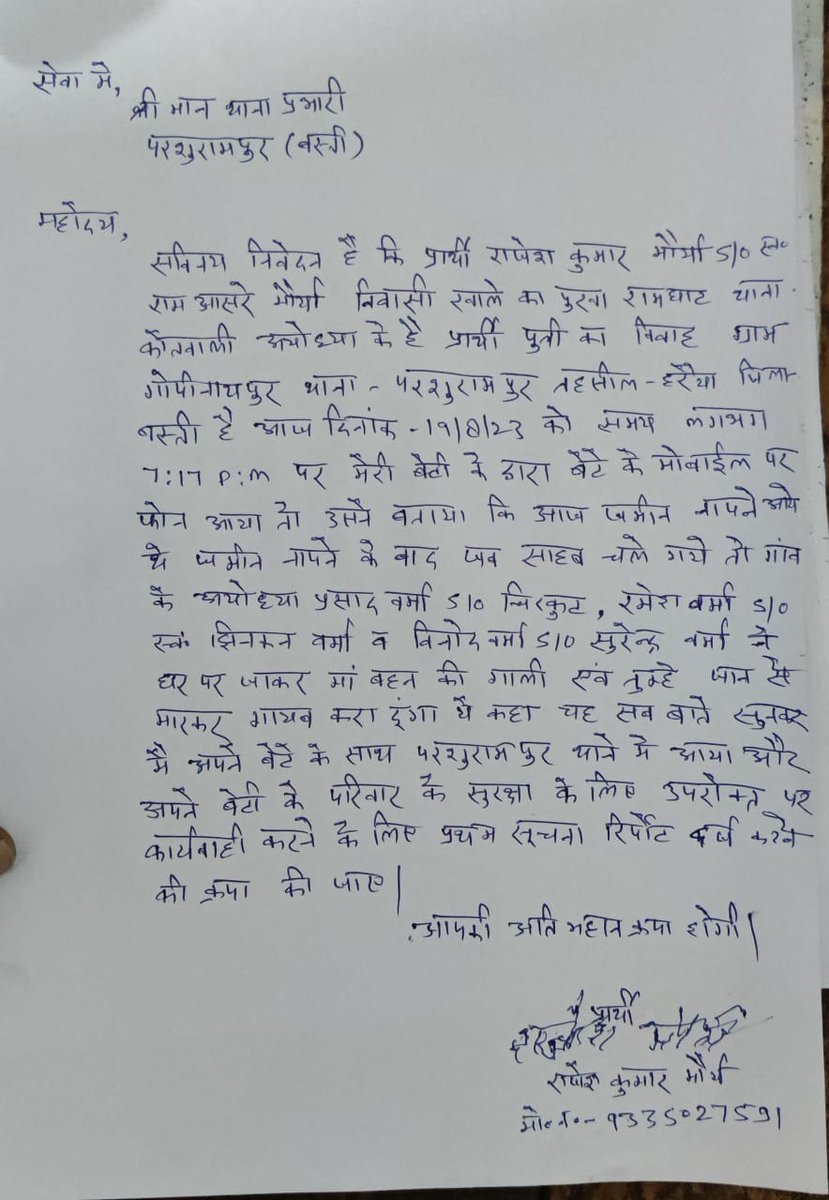 सेवा मे,
श्री मान थाना प्रभारी
परशुरामपुर (बस्ती)
महोदय,
सविनय निवेदन है कि प्रार्थी राजेश कुमार मौर्या S/O स्व०
राम आसरे मौर्या निवासी ख्वाले का पुरवा रामघाट थाना
कोतवाली अयोध्या के है प्रार्थी पुत्री का विवाह ग्राम
गोपीनाथपुर थाना - परशुरामपुर तहसील - हरैया जिला
बस्ती है आज दिनांक - 19/8/23 को समय लगभग
7:17 P:m पर मेरी बेटी के द्वारा बेटे के मोबाईल पर
फोन आया तो उसने बताया कि आज जमीन नापने आये
थे जमीन नापने के बाद जब साहब चले गये तो गांव
के अयोध्या प्रसाद वर्मा S/O चिरकुट, रमेश वर्मा S/O
स्व० झिनकन वर्मा व विनोद वर्मा S/O सुरेन्द्र वर्मा ने
घर पर जाकर मां बहन की गाली एवं तुम्हे जान से
मारकर गायब करा दूंगा ये कहा यह सब बाते सुनकर
मै अपने बेटे के साथ परशुरामपुर थाने मे आया और
अपने बेटी के परिवार के सुरक्षा के लिए उपरोक्त पर
कार्यवाही करने के लिए प्रथम सूचना रिर्पोट दर्ज करने
की क्रपा की जाए|
आपकी अति महान क्रपा होगी|
प्रार्थी
राजेश कुमार मौर्य
मो०न०- 9335027591